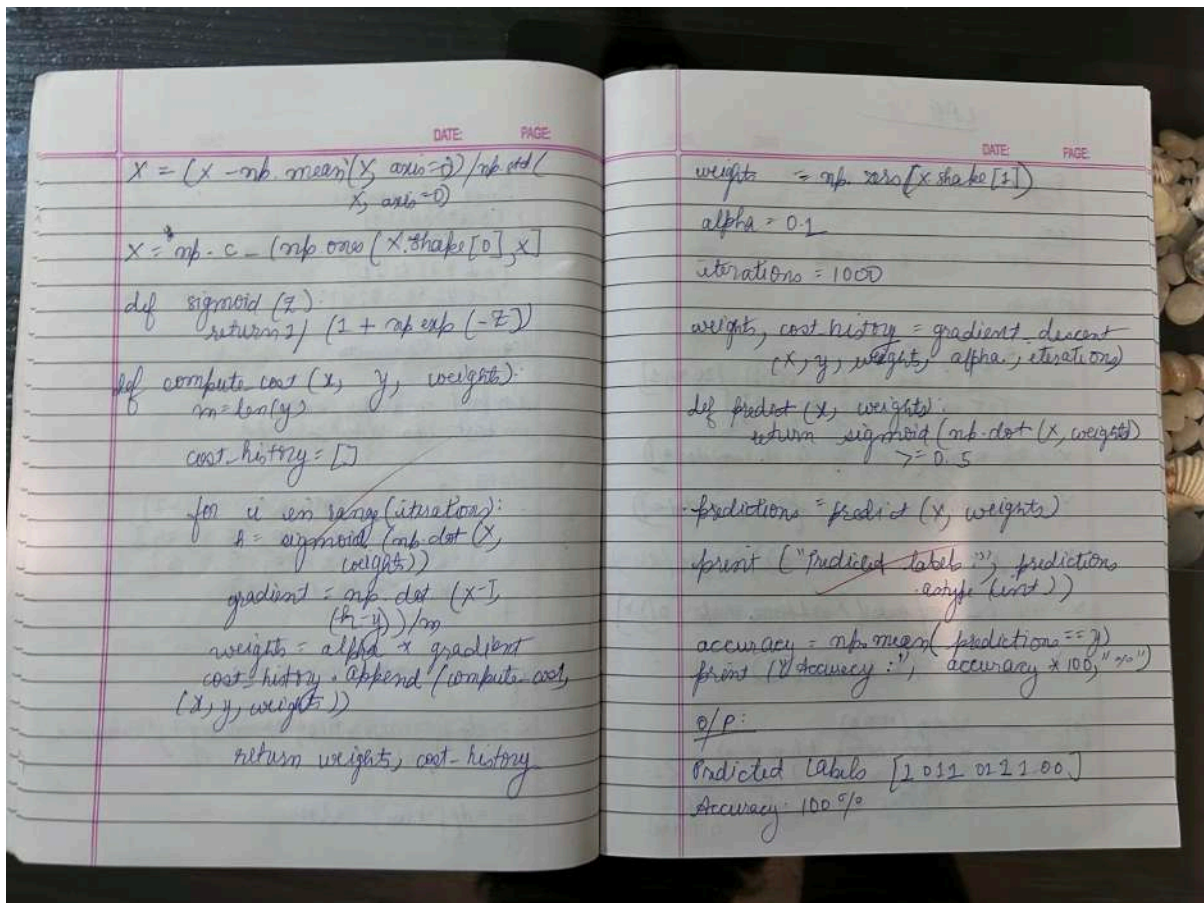 DATE: PAGE:
X = (X - np. mean(X, axis=0)/np. std(
X, axis=0)
X = np. c_ (np. ones (X.shape[0], X]
def sigmoid (z):
return 1/ (1 + np exp (-z))
def compute_cost (x, y, weights):
m = len(y)
cost_history = []
for i in range (iterations):
h = sigmoid (np. dot (X,
weights))
gradient = np. dot (X-T,
(h-y))/m
weights = alpha * gradient
cost_history . append (compute_cost,
(x, y, weights))
return weights, cost_history
DATE: PAGE:
weights = np. zeros(x shape [1])
alpha = 0.1
iterations = 1000
weights, cost_history = gradient_descent
(X, y, weights, alpha, iterations)
def predict (x, weights):
return sigmoid (np. dot (X, weights)
>= 0.5
predictions = predict (X, weights)
print ("Predicted labels :", prediction
.astype (int))
accuracy = np. mean( predictions == y)
print ("Accuracy :", accuracy * 100, "%")
O/P:
Predicted Labels [1 0 1 1 0 1 1 1 0 0]
Accuracy: 100 %